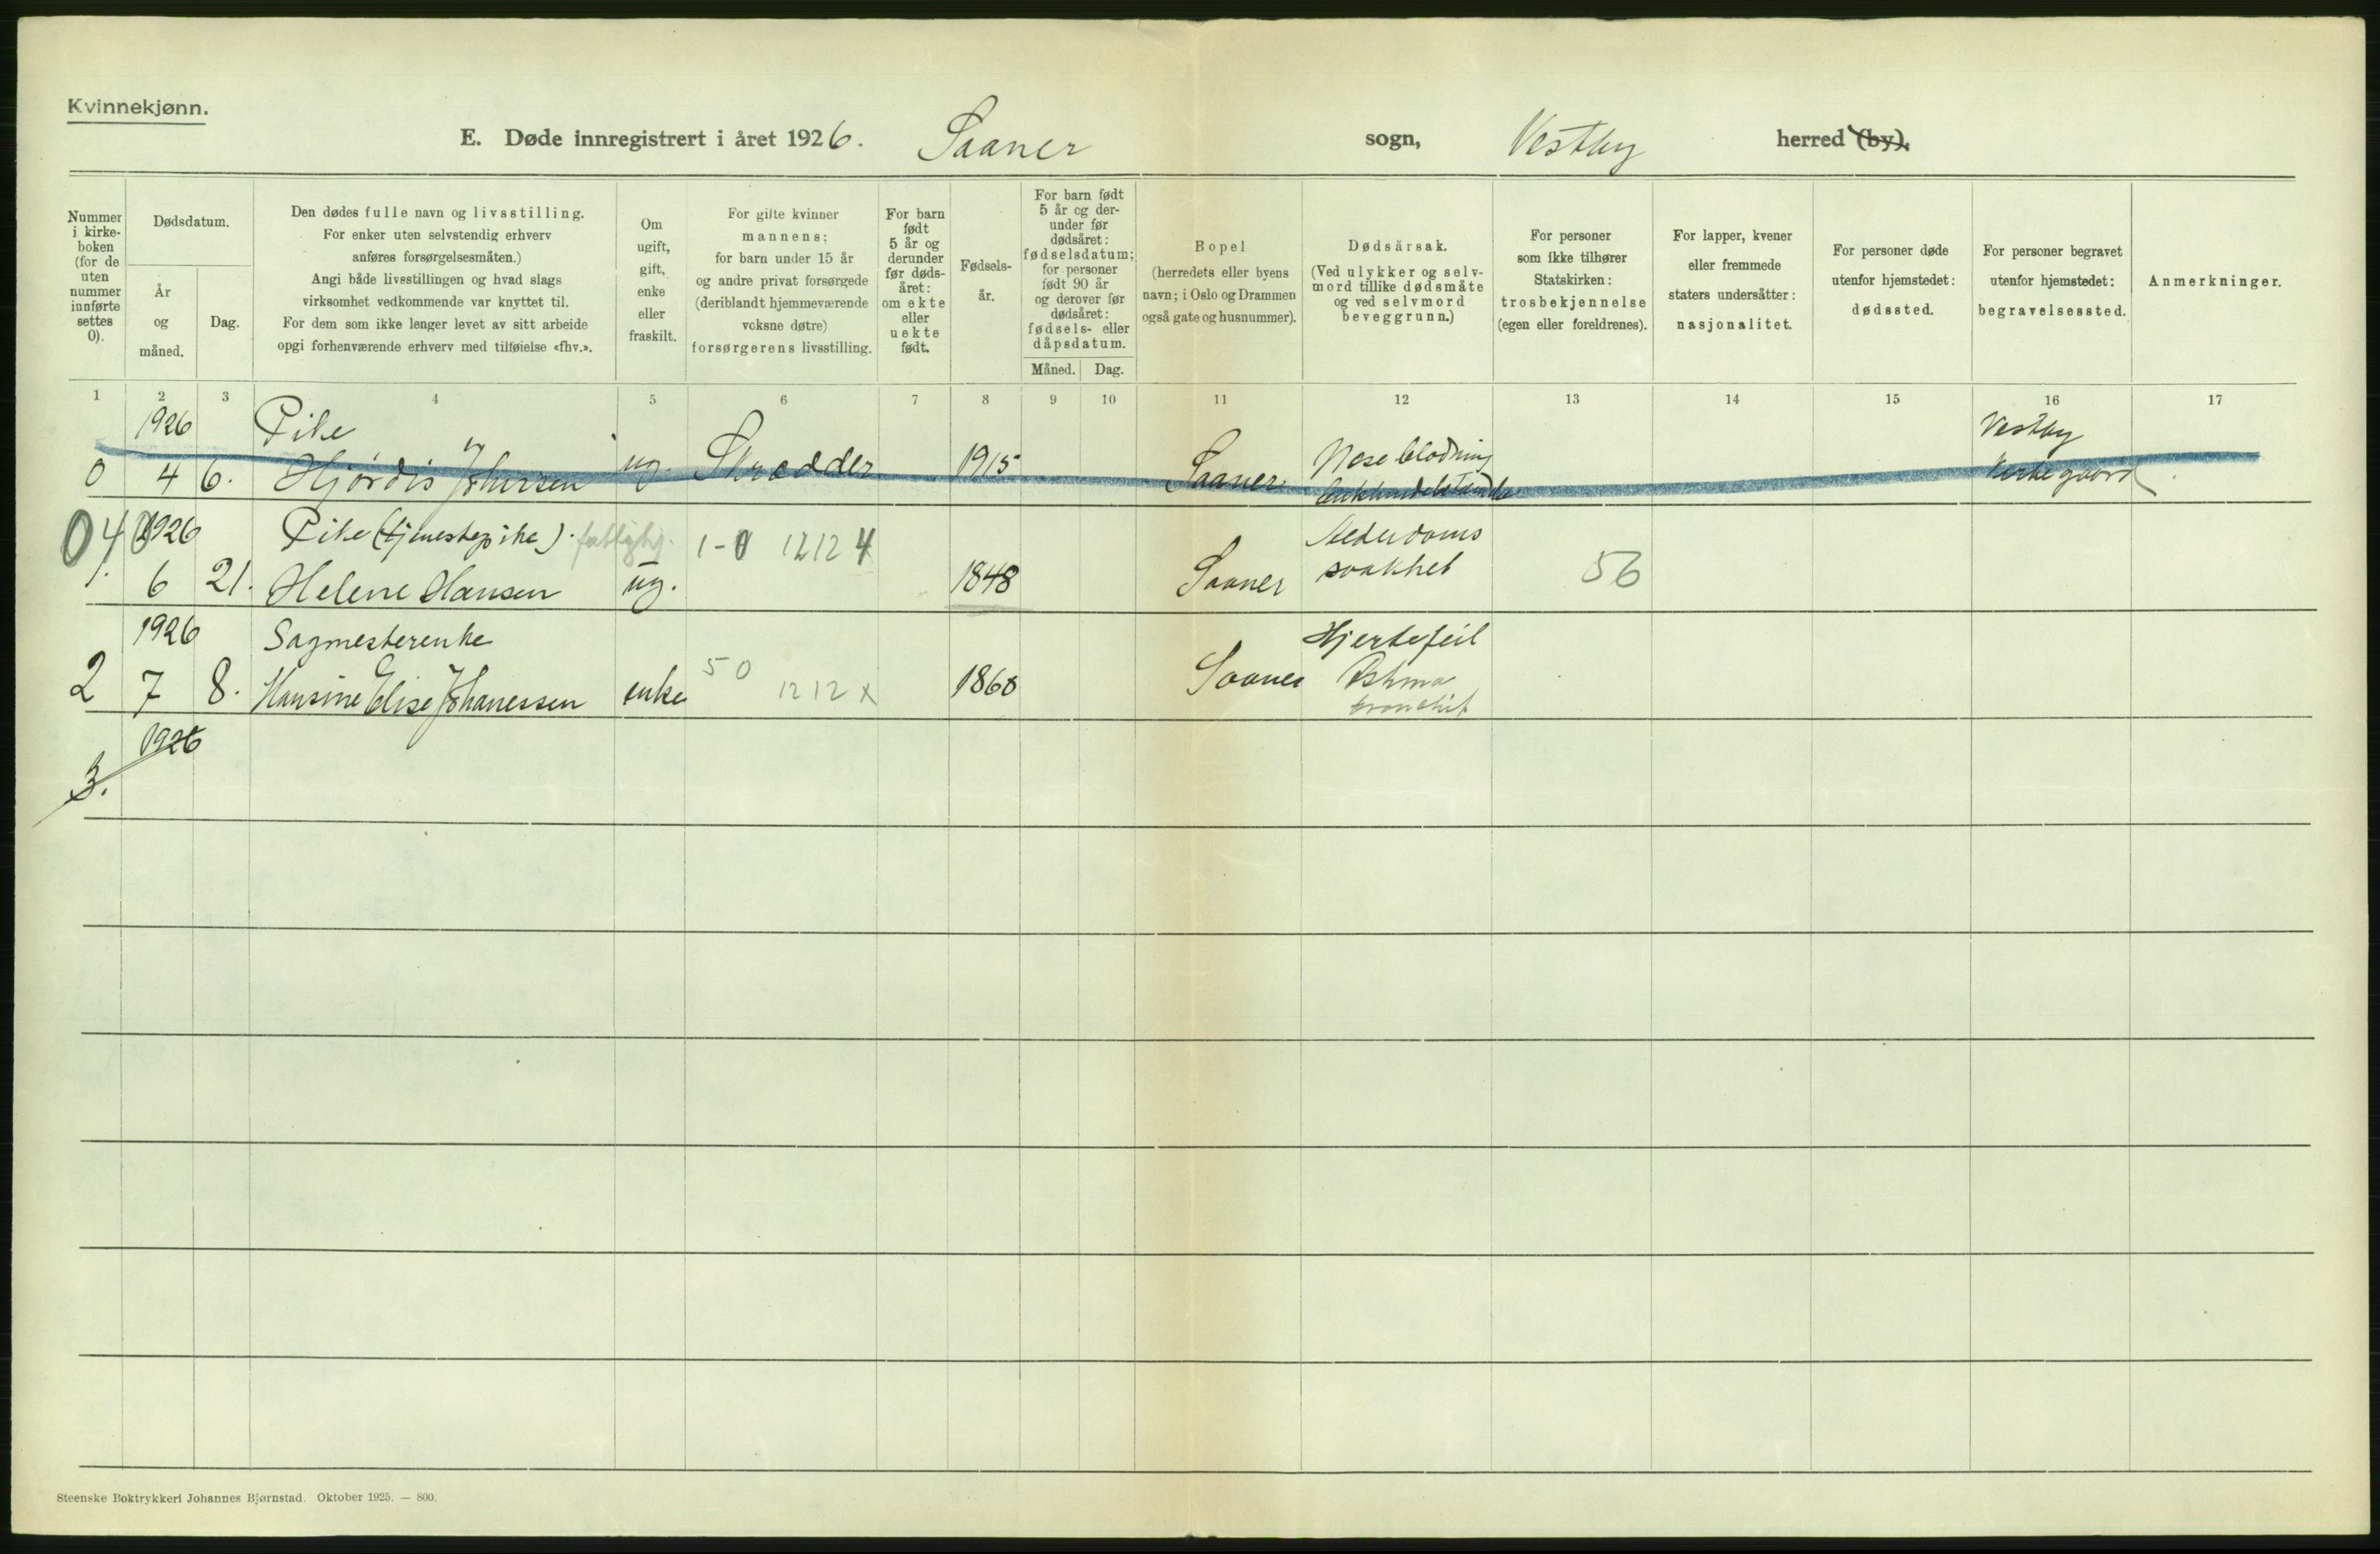 Kvinnekjønn.
E. Døde innregistrert i året 1926. Saaner sogn, Vestby herred (by).
Nummer i kirke- boken (for de uten nummer innførte settes 0).
Dødsdatum.
År og måned.
Dag.
Den dødes fulle navn og livsstilling.
For enker uten selvstendig erhverv
anføres forsørgelsesmåten.)
Angi både livsstillingen og hvad slags
virksomhet vedkommende var knyttet til.
For dem som ikke lenger levet av sitt arbeide
opgi forhenværende erhverv med tilføielse «fhv.».
Om
ugift,
gift,
enke
eller
fraskilt.
For gifte kvinner
mannens;
for barn under 15 år
og andre privat forsørgede
(deriblandt hjemmeværende
voksne døtre)
forsørgerens livsstilling.
For barn
født
5 år og
derunder
før døds-
året:
om ekte
eller
uekte
født.
Fødsels-
år.
For barn født
5 år og der-
under før
dødsåret:
fødselsdatum;
for personer
født 90 år
og derover før
dødsåret:
fødsels- eller
dåpsdatum.
Måned. Dag.
Bopel
(herredets eller byens
navn; i Oslo og Drammen
også gate og husnummer).
Dødsårsak.
(Ved ulykker og selv-
mord tillike dødsmåte
og ved selvmord
beveggrunn.)
For personer
som ikke tilhører
Statskirken:
trosbekjennelse
(egen eller foreldrenes).
For lapper, kvener
eller fremmede
staters undersåtter:
nasjonalitet.
For personer døde
utenfor hjemstedet:
dødssted.
For personer begravet
utenfor hjemstedet:
begravelsessted.
Anmerkninger.
1 2 3 4 5 6 7 8 9 10 11 12 13 14 15 16 17
1926 Pike Vestby
0 4 6. Hjørdis Johansen ug. Skrædder 1915 Saaner Neseblødning Kirkegaard
040 1926 Pike (tjenestepike). 1-0 1212 4 Alderdoms
1. 6 21. Helene Hansen ug. 1848 Saaner svakhet 56
1926 Sagmesterenke Hjertefeil
2 7 8. Hansine Elise Johanessen enke 50 1212 x 1868 Saaner Astma
bronchit
1926
3.
Steenske Boktrykkeri Johannes Bjørnstad. Oktober 1925. — 800.